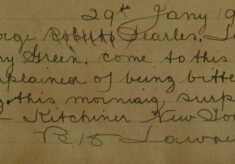 29th Jany 9
orge Roberts Searles, L
ry Green, come to this
plained of being bitte
g, this morning, surp
Kitchiner New Yor
R to Lawre